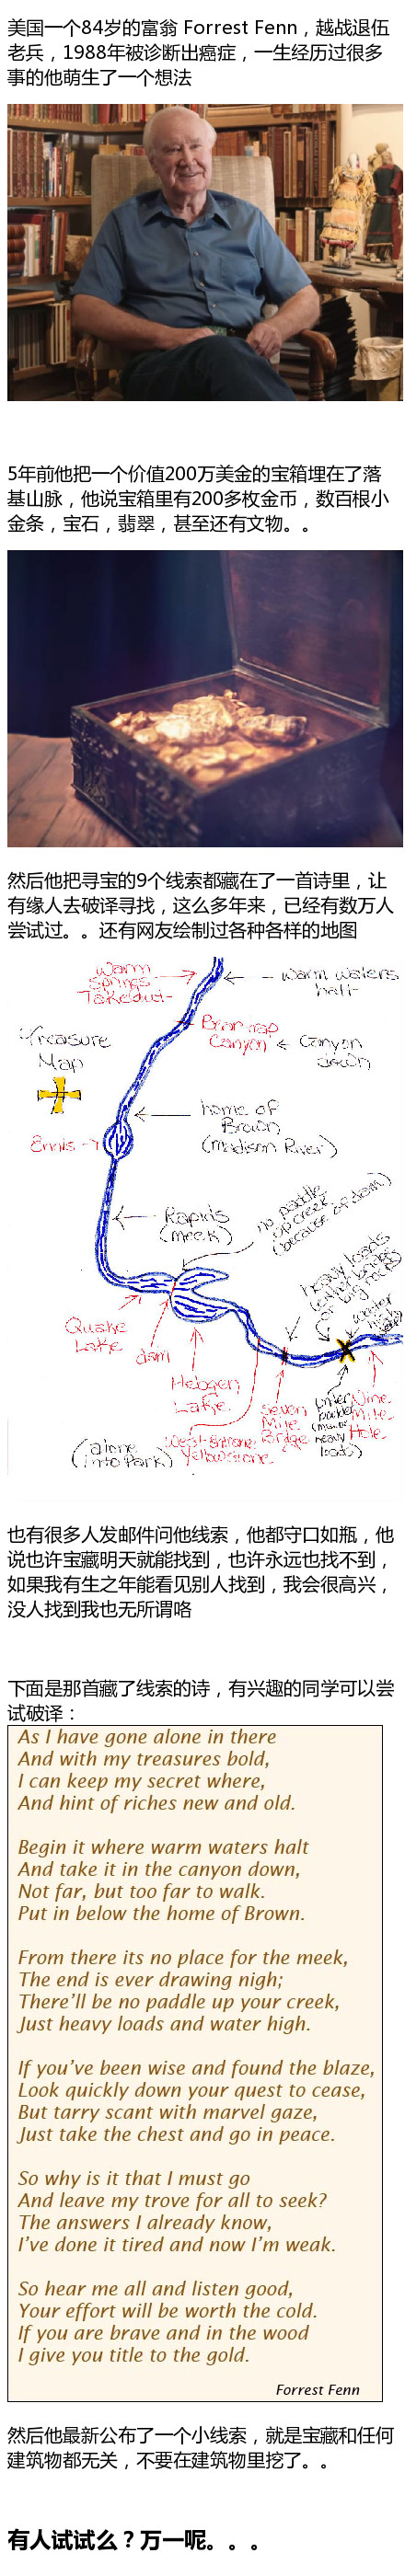 美国一个84岁的富翁 Forrest Fenn，越战退伍
老兵，1988年被诊断出癌症，一生经历过很多
事的他萌生了一个想法
5年前他把一个价值200万美金的宝箱埋在了落
基山脉，他说宝箱里有200多枚金币，数百根小
金条，宝石，翡翠，甚至还有文物。。
然后他把寻宝的9个线索都藏在了一首诗里，让
有缘人去破译寻找，这么多年来，已经有数万人
尝试过。。还有网友绘制过各种各样的地图
Warm
Springs
Takeout
warm waters
halt
Treasure
Map
Bear Trap
Canyon
Canyon
down
home of
Brown
(Madison River)
Ennis
Rapids
(meek)
no paddle
up creek
(because of dam)
heavy loads
(either bridge
or big rocks)
water
high
Quake
Lake
dam
Hebgen
Lake
West Entrance
Yellowstone
Seven
Mile
Bridge
heavy
loads)
Nine
Mile
Hole
(alone
into Park)
也有很多人发邮件问他线索，他都守口如瓶，他
说也许宝藏明天就能找到，也许永远也找不到，
如果我有生之年能看见别人找到，我会很高兴，
没人找到我也无所谓咯
下面是那首藏了线索的诗，有兴趣的同学可以尝
试破译：
As I have gone alone in there
And with my treasures bold,
I can keep my secret where,
And hint of riches new and old.
Begin it where warm waters halt
And take it in the canyon down,
Not far, but too far to walk.
Put in below the home of Brown.
From there its no place for the meek,
The end is ever drawing nigh;
There’ll be no paddle up your creek,
Just heavy loads and water high.
If you’ve been wise and found the blaze,
Look quickly down your quest to cease,
But tarry scant with marvel gaze,
Just take the chest and go in peace.
So why is it that I must go
And leave my trove for all to seek?
The answers I already know,
I’ve done it tired and now I’m weak.
So hear me all and listen good,
Your effort will be worth the cold.
If you are brave and in the wood
I give you title to the gold.
Forrest Fenn
然后他最新公布了一个小线索，就是宝藏和任何
建筑物都无关，不要在建筑物里挖了。。
有人试试么？万一呢。。。